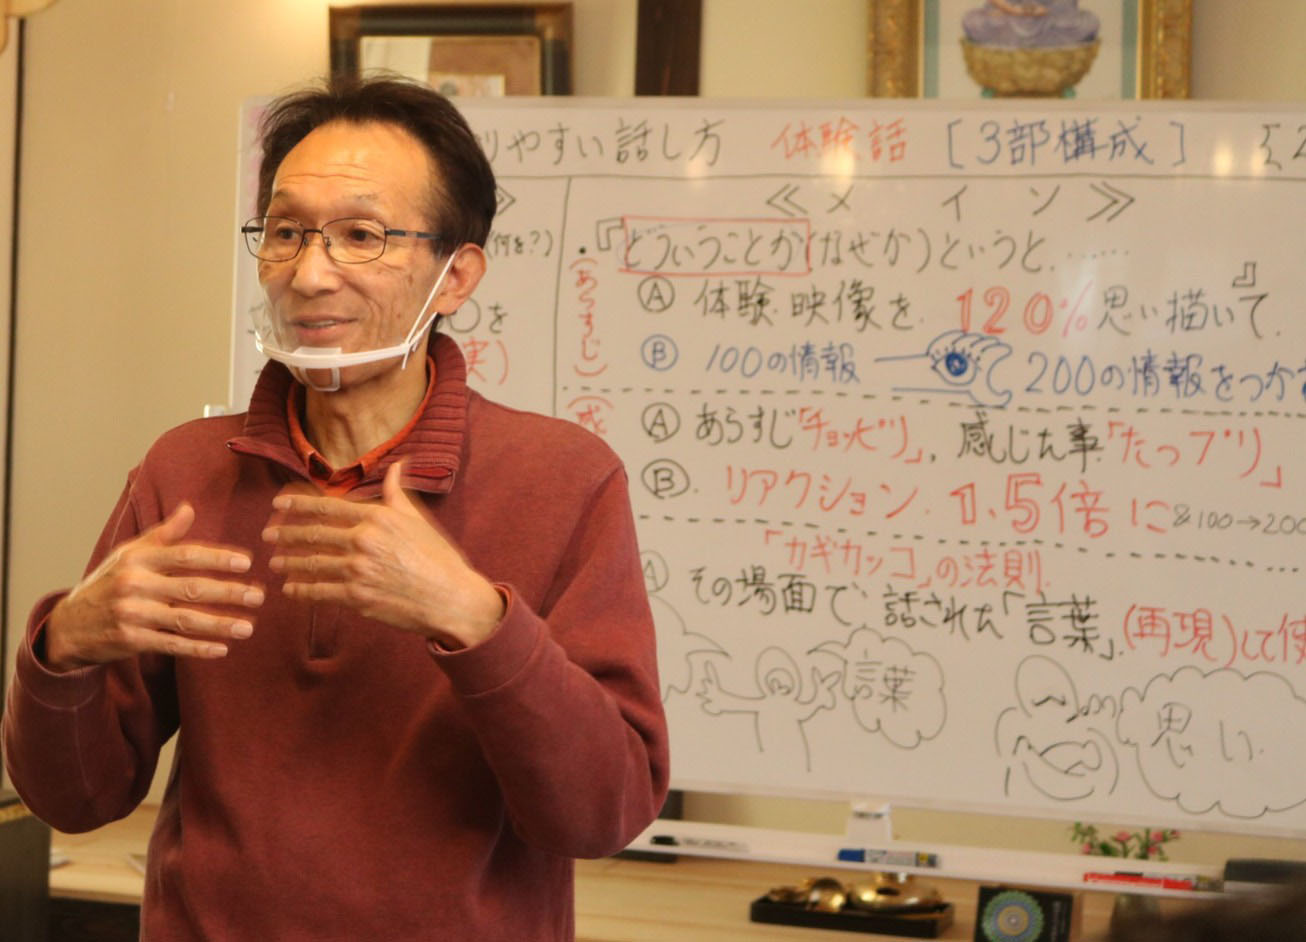 りやすい話し方 体験話 [3部構成]
≪メイン≫
(何を?)
・『どういうことか(なぜか)というと……』
(あらすじ)
Ⓐ 体験映像を、120%思い描いて、
を
実)
Ⓑ 100の情報 200の情報をつか
Ⓐ あらすじ「チョッピリ」、感じた事「たっプリ」
Ⓑ. リアクション、1.5倍に &100→200
「カギカッコ」の法則
Ⓐ その場面で、話された「言葉」、(再現)して使
言葉
思い